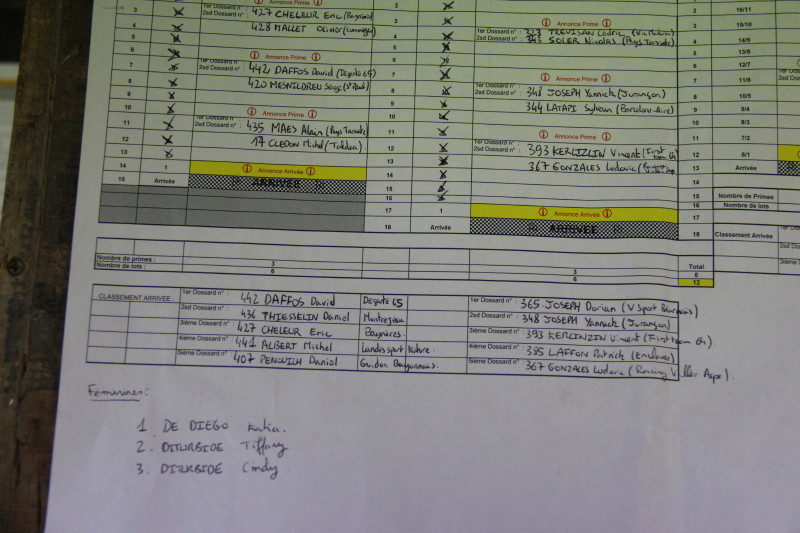 3 427 CHELEUR Eric (Bagnères) 3 2 16/11
2sd Dossard n° : 428 MALLET Olivier 3 Annonce Prime 3 15/10
4 1er Dossard n° : 323 TREVISAN Cédric
5 4 2sd Dossard n° : 343 SOLER Nicolas (Pays Tarusate) 4 14/9
5 5 13/8
6 Annonce Prime 6 6 12/7
7 1er Dossard n° : 442 DAFFOS David (Députe 65) 7 Annonce Prime 7 11/6
8 2sd Dossard n° : 420 MESNILDREU Serg (St Paul) 8 1er Dossard n° : 348 JOSEPH Yannick (Jurançon) 8 10/5
9 9 2sd Dossard n° : 344 LATAPI Sylvain (Barcelone-Aire) 9 9/4
10 Annonce Prime 10 10 8/3
11 1er Dossard n° : 435 MAES Alain (Pays Tarusate) 11 Annonce Prime 11 7/2
12 2sd Dossard n° : 17 CLEDON Michel 12 1er Dossard n° : 393 KERLIZLIN Vincent (First team 64) 12 6/1
13 13 2sd Dossard n° : 367 GONZALES Ludovic 13 Arrivée
14 1 Annonce Arrivée 14 14
15 Arrivée ARRIVEE 15 15 Nombre de Primes
16 16 Nombre de lots
17 1 Annonce Arrivée 17
18 Arrivée ARRIVEE 18 Classement Arrivée
Nombre de primes : 3 3 Total 6
Nombre de lots : 6 6 12
CLASSEMENT ARRIVEE : 1er Dossard n° : 442 DAFFOS David Députe 65 1er Dossard n° : 365 JOSEPH Dorian (V Sport Béarnais)
2sd Dossard n° : 436 THIESSELIN Daniel 2sd Dossard n° : 348 JOSEPH Yannick (Jurançon)
3ième Dossard n° : 427 CHELEUR Eric Bagnères. 3ième Dossard n° : 393 KERLINZIN Vincent (First team 64).
4ième Dossard n° : 441 ALBERT Michel Landes sport Nature. 4ième Dossard n° : 385 LAFFON Patrick
5ième Dossard n° : 407 Daniel Guidon Bayonnais. 5ième Dossard n° : 367 GONZALES Ludovic
Feminines:
1 DE DIEGO Katia.
2. DITURBIDE Tiffany
3. DITURBIDE Cindy